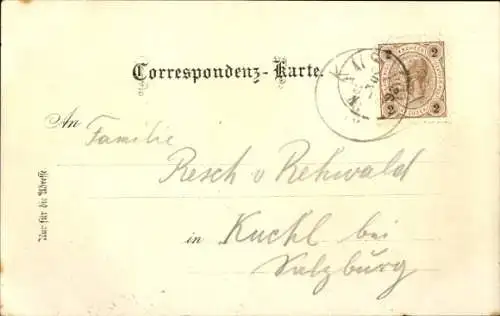 Correspondenz-Karte.
An Familie
Resch v Rehwald
in Kuchl bei
Salzburg
Nur für die Adresse.
2 2
2 2